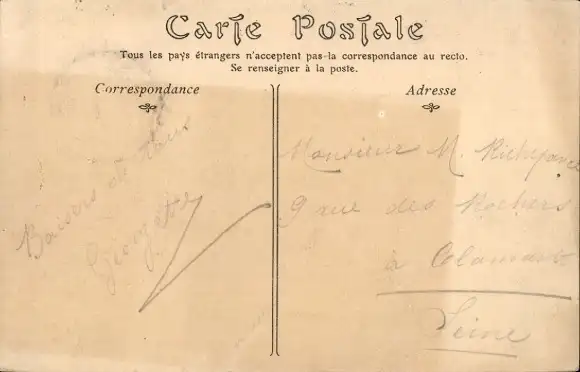 Carte Postale
Tous les pays étrangers n'acceptent pas la correspondance au recto.
Se renseigner à la poste.
Correspondance
Baisers de tous
Adresse
Monsieur M. Richefance
9 rue des Rochers
à Clamart
Seine